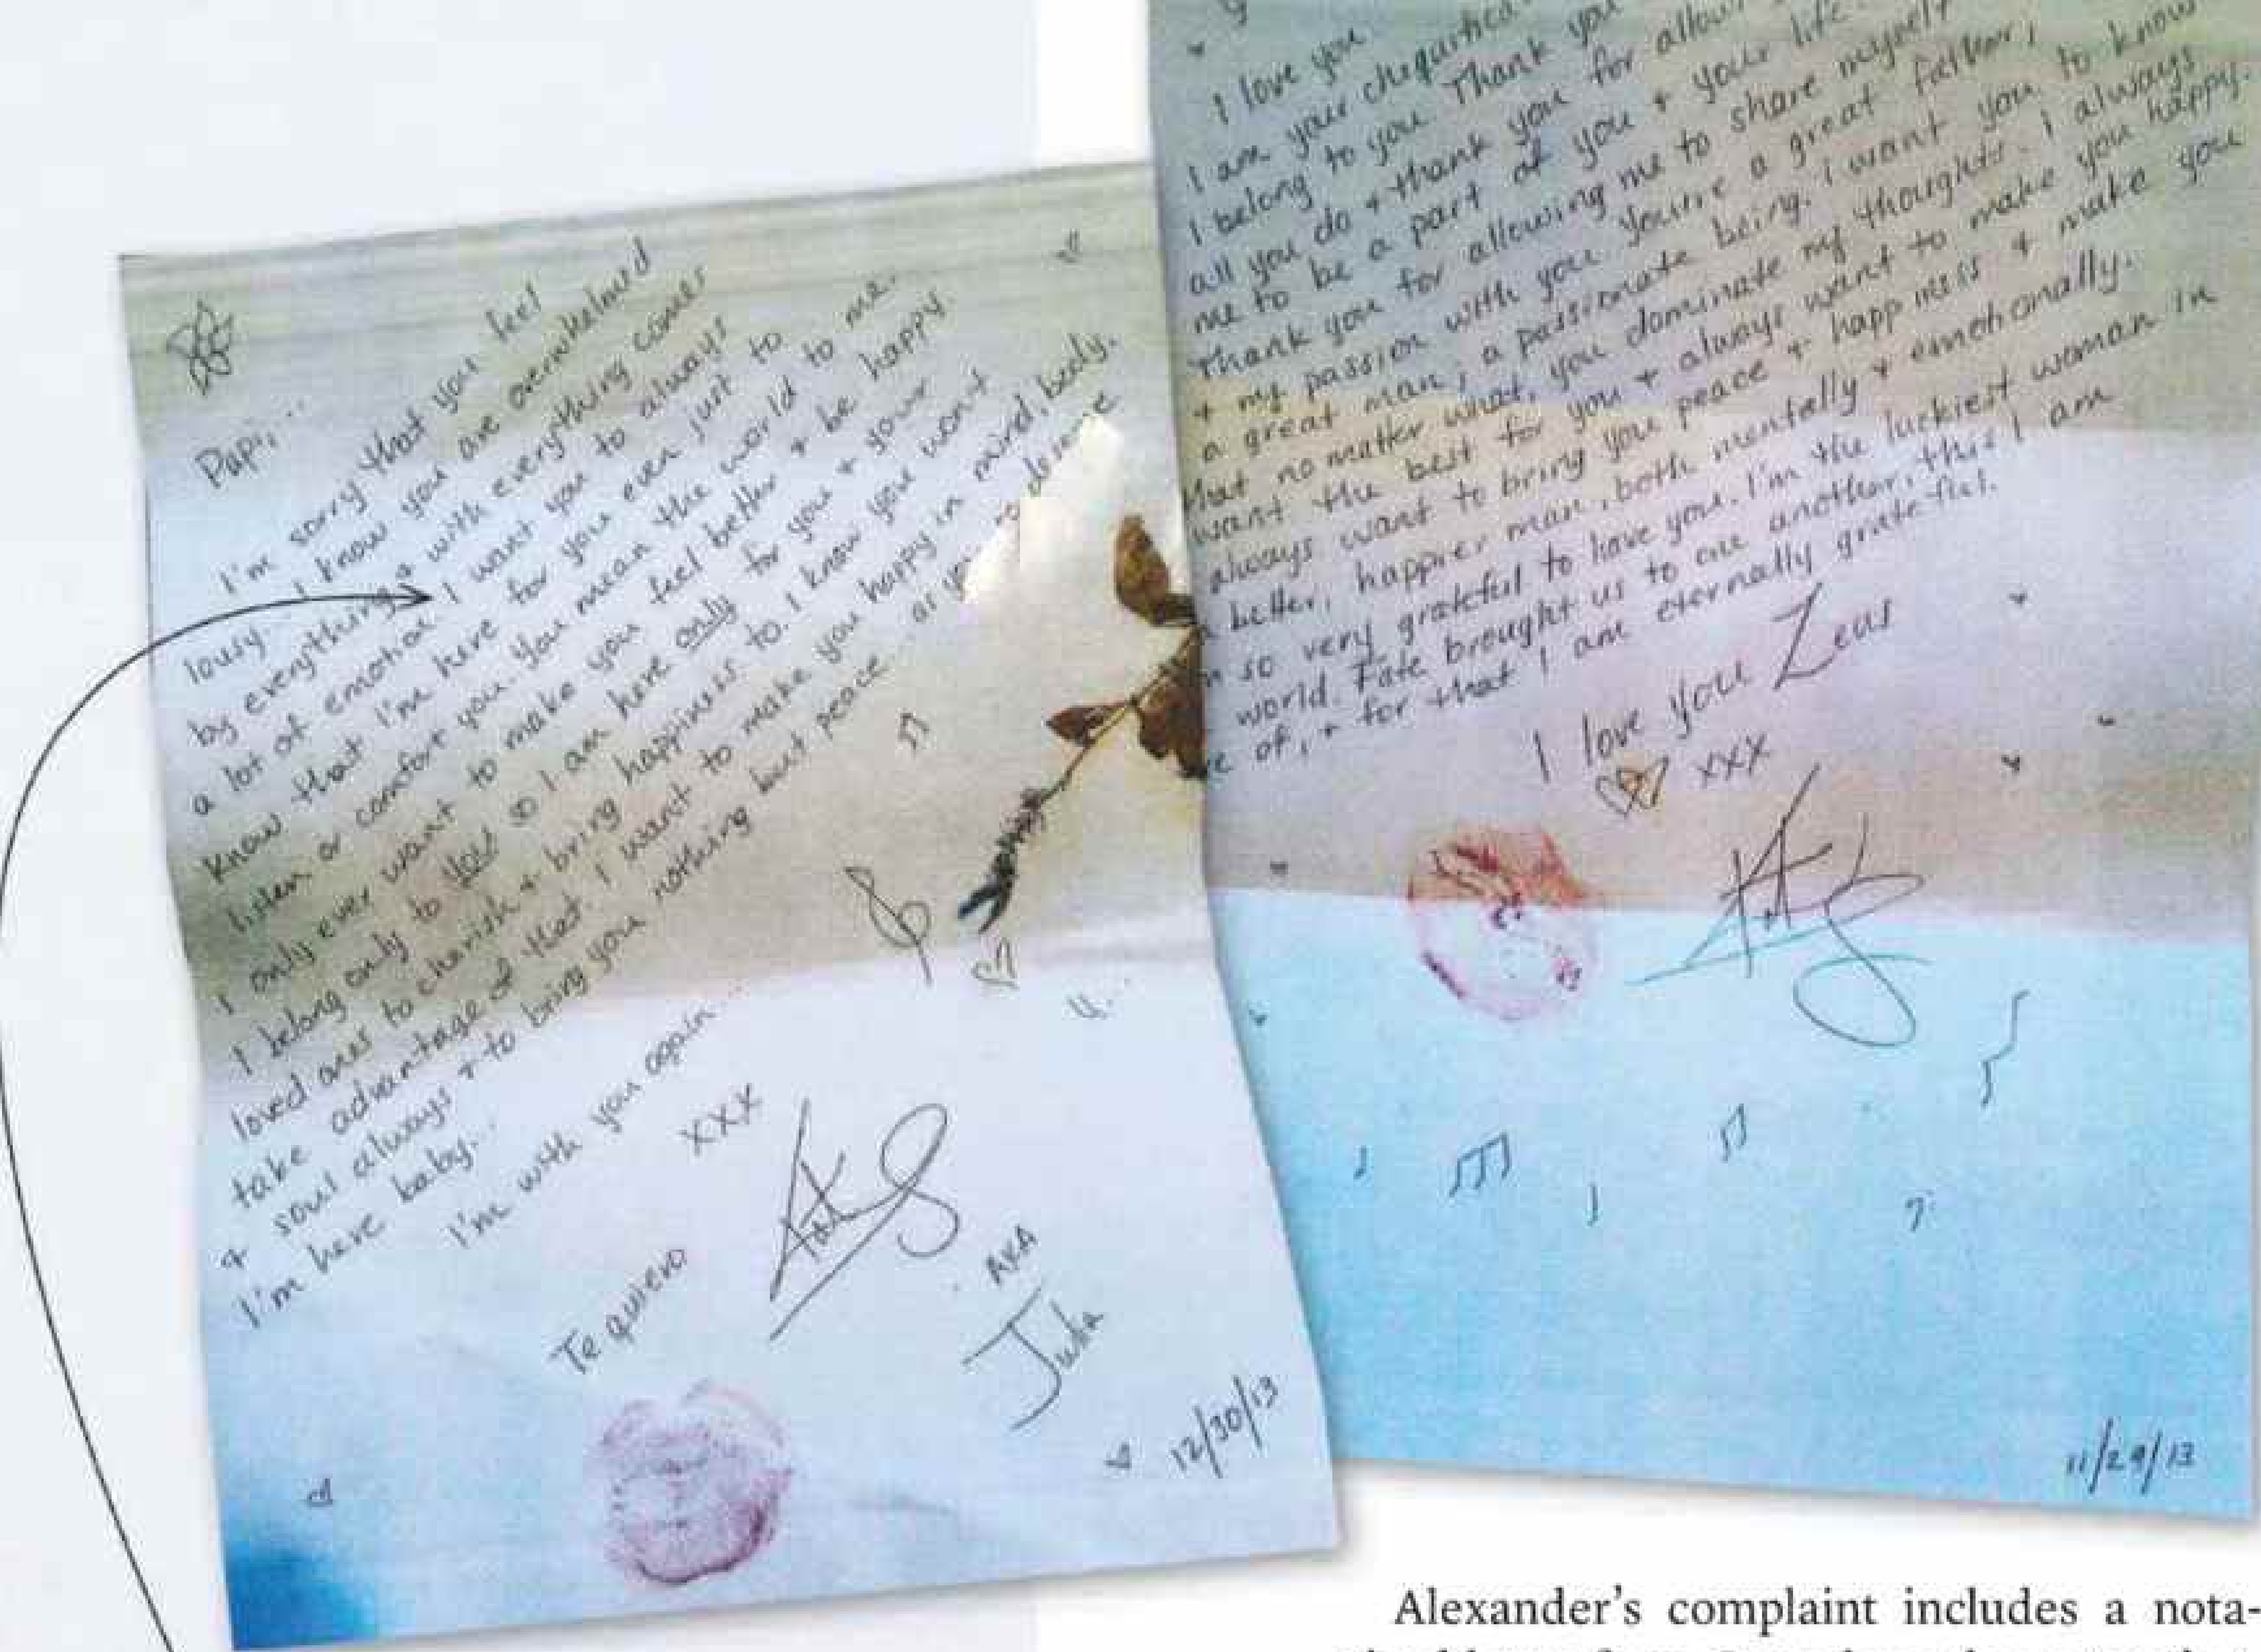 Papi...
I'm sorry that you feel
lousy. I know you are overwhelmed
by everything & with everything comes
a lot of emotion. I want you to always
know that I'm here for you even just to
listen or comfort you. You mean the world to me.
I only ever want to make you feel better + be happy
I belong only to you so I am here only for you + your
loved ones to cherish + bring happiness to. I know you want
take advantage of that. I want to make you happy in mind, body,
+ soul always + to bring you nothing but peace as you so deserve
I'm here baby...
I'm with you again...
xxx
Te quiero
AKA
Julia
12/30/13
I love you
I am your chiquitica
I belong to you. Thank you
all you do + thank you for allow
me to be a part of you + your life.
Thank you for allowing me to share myself
+ my passion with you. You're a great father,
a great man, a passionate being. I want you to know
that no matter what, you dominate my thoughts. I always
want the best for you + always want to make you happy.
always want to bring you peace + happiness + make you
a better, happier man, both mentally + emotionally.
so very grateful to have you. I'm the luckiest woman in
world. Fate brought us to one another, this I am
of, + for that I am eternally grateful.
I love you Zeus
xxx
11/29/13
Alexander's complaint includes a nota-